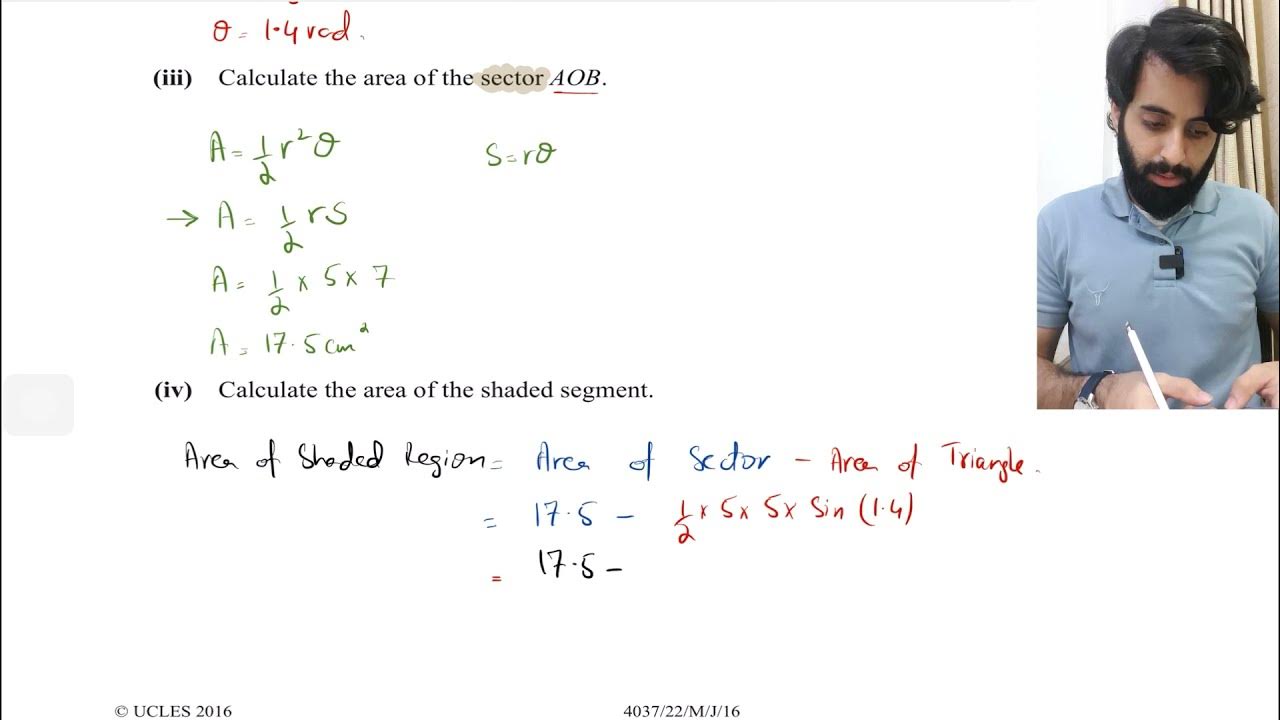 θ = 1.4 rad.
(iii) Calculate the area of the sector AOB.
A = 1/2 r² θ S = rθ
→ A = 1/2 rS
A = 1/2 × 5 × 7
A = 17.5 cm²
(iv) Calculate the area of the shaded segment.
Area of Shaded Region = Area of Sector - Area of Triangle.
= 17.5 - 1/2 × 5 × 5 × Sin (1.4)
= 17.5 -
© UCLES 2016 4037/22/M/J/16